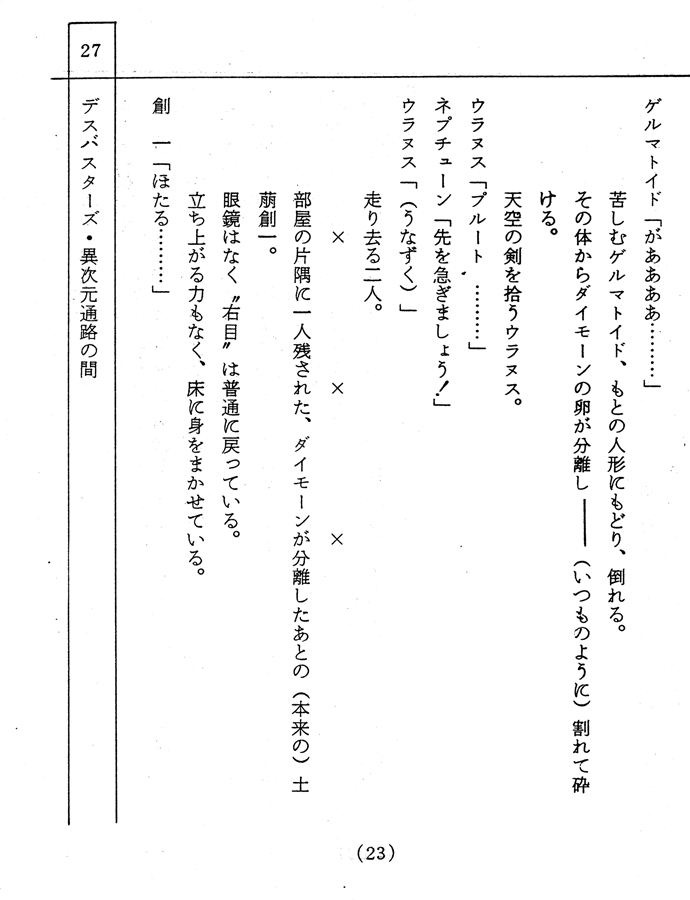 ゲルマトイド「がああああ………」
苦しむゲルマトイド、もとの人形にもどり、倒れる。
その体からダイモーンの卵が分離し――(いつものように)割れて砕
ける。
天空の剣を拾うウラヌス。
ウラヌス「プルート ………」
ネプチューン「先を急ぎましょう!」
ウラヌス「(うなずく)」
走り去る二人。
× × ×
部屋の片隅に一人残された、ダイモーンが分離したあとの(本来の)土
萠創一。
眼鏡はなく〝右目〟は普通に戻っている。
立ち上がる力もなく、床に身をまかせている。
創 一「ほたる………」
27
デスバスターズ・異次元通路の間
(23)